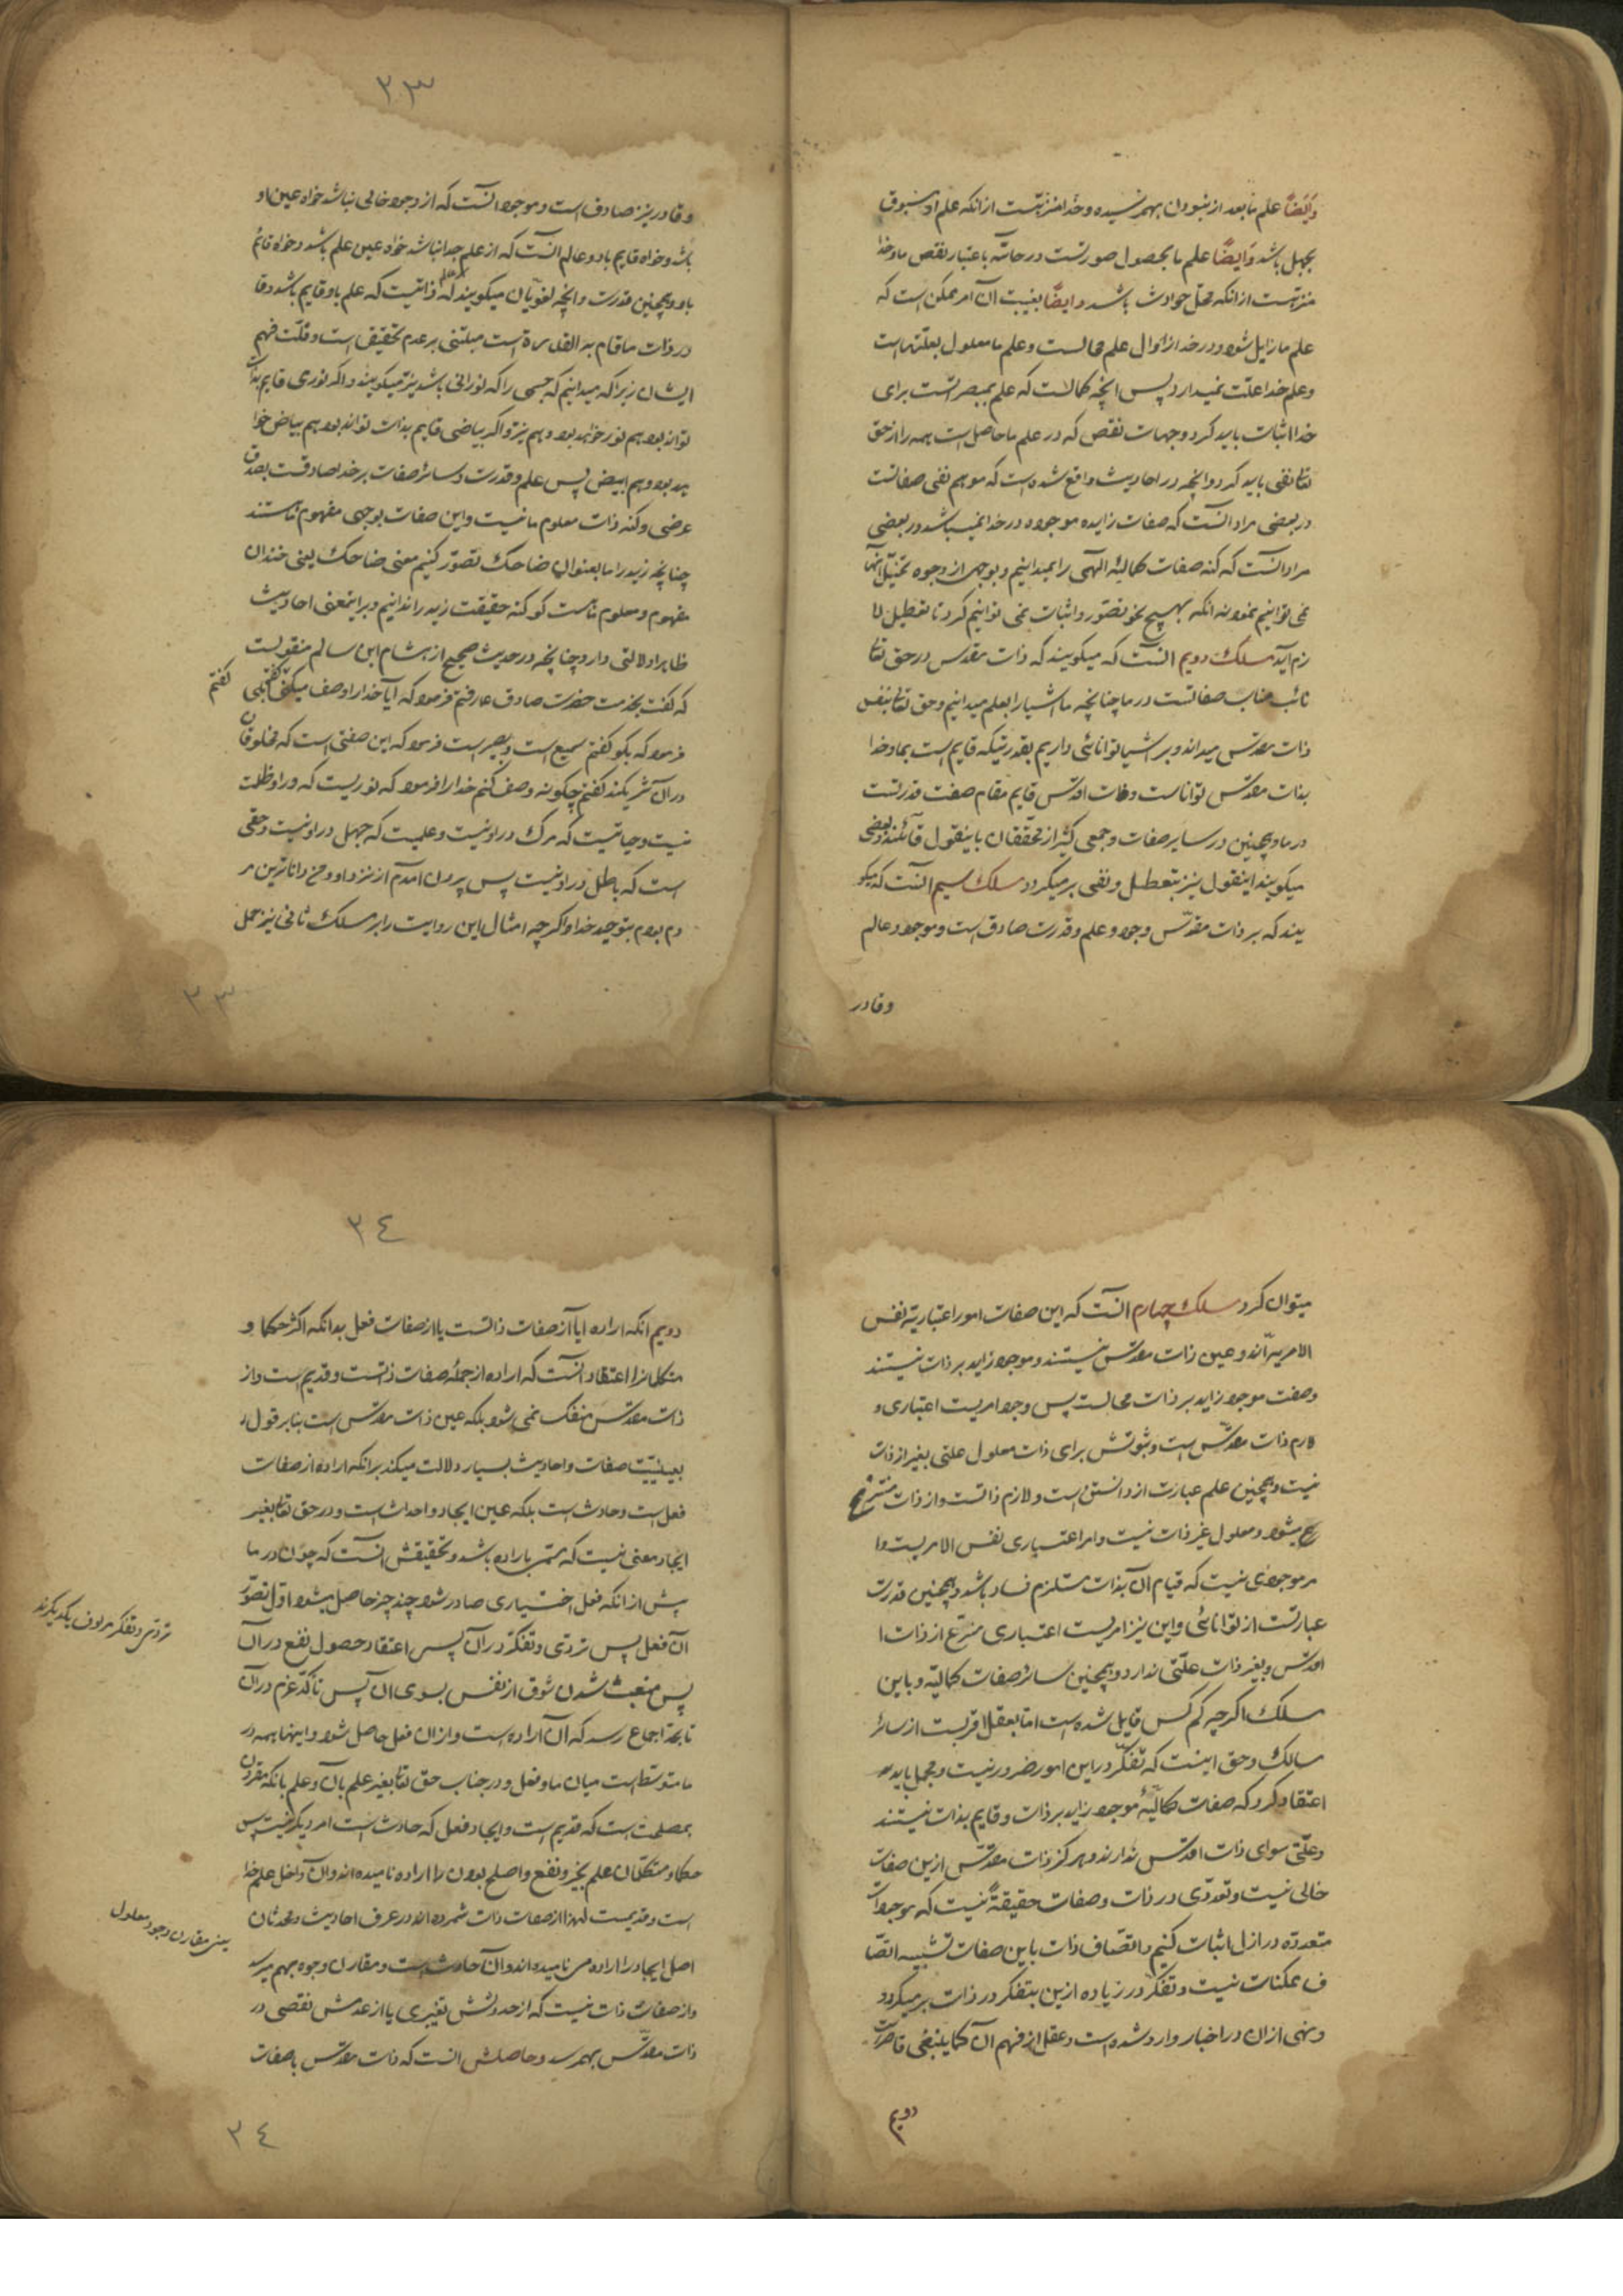 وَایضاً علم ما بعد از نبودن بهم رسیده و خدا منزهست از انکه علم او مسبوق
بجهل باشد وَایضاً علم ما بحصول صورتست در حاسّه باعتبار نقص ما و خدا
منزهست از انکه محل حوادث باشد و ایضاً بغیبت آن امر ممکن است که
علم ما زایل شود و در خدا زوال علم محالست و علم ما معلول بعلتهاست
و علم خدا علّت نمیدارد پس انچه کمالست که علم بمبصراتست برای
خدا اثبات باید کرد و جهات نقص که در علم ما حاصل است همه را از حق
تعا نفی باید کرد و انچه در احادیث واقع شده است که موهم نفی صفاتست
در بعضی مراد انست که صفات زایده موجوده در خدا نمیباشد و در بعضی
مراد انست که کنه صفات کمالیّهٔ الهی را نمیدانیم و بوجهی از وجوه تمثیل آنها
می توانیم نمود نه انکه بهیچ نحو تصوّر و اثبات نمی توانیم کرد تا تعطیل لا
زم آید مسلک دویم انست که میکویند که ذات مقدس در حق تعا
نائب مناب صفاتست در ما چنانچه ما اشیا را بعلم میدانیم و حق تعا بنفس
ذات مقدّس میداند و بر اشیا توانائی داریم بقدرتیکه قایم است بما و خدا
بذات مقدّس تواناست و ذات اقدس قایم مقام صفت قدرتست
در ما و همچنین در سایر صفات و جمعی کثیر از محققان باینقول قائلند و بعضی
میکویند اینقول نیز بتعطیل و نفی بر میکردد مسلک سیم انست که میکو
یند که بر ذات مقدّس وجود و علم و قدرت صادق است و موجود و عالم
و قادر
٣٣
و قادر نیز صادق است و موجود انست که از وجود خالی نباشد خواه عین او
باشد و خواه قایم باو و عالم انست که از علم جدا نباشد خواه عین علم باشد و خواه قائم
باو و همچنین قدرت و انچه لغویان میکویند که عالم ذاتیست که علم باو قایم باشد و قا
در ذات ما قام به القدرة است مبتنی بر عدم تحقیق است و قلّت فهم
ایشان زیرا که میدانیم که جسمی را که نورانی باشد نیّر میکویند و اکر نوری قایم بذات
تواند بود هم نور خواهد بود و هم نیّر و اکر بیاضی قایم بذات تواند بود هم بیاض خوا
هد بود و هم ابیض پس علم و قدرت و سائر صفات بر خدا صادقست بصدق
عرضی و کنه ذات معلوم ما نیست و این صفات بوجهی مفهوم ماستند
چنانچه زید را ما بعنوان ضاحک تصوّر کنیم معنی ضاحک یعنی خندان
مفهوم و معلوم ماست کو کنه حقیقت زید را ندانیم و بر اینمعنی احادیث
ظاهرا دلالتی دارد چنانچه در حدیث صحیح از هشام ابن سالم منقولست
که کفت بخدمت حضرت صادق ع رفتم فرمود که آیا خدا را وصف میکنی کفتم بلی
کفتم
فرمود که بکو کفتم سمیع است و بصیر است فرمود که این صفتی است که مخلوقان
در آن شریکند کفتم چکونه وصف کنم خدا را فرمود که نوریست که در او ظلمت
نیست و حیاتیست که مرک در او نیست و علمیست که جهل در او نیست و حقی
است که باطل در او نیست پس بیرون آمدم از نزد او و من داناترین مر
دم بودم بتوحید خدا و اکر چه امثال این روایت را بر مسلک ثانی نیز حمل
٣٣
میتوان کرد مسلک چهارم انست که این صفات امور اعتباریهٔ نفس
الامریّه اند و عین ذات مقدّس نیستند و موجود زاید بر ذات نیستند
و صفت موجود زاید بر ذات محالست پس وجود امریست اعتباری و
لازم ذات مقدّس است و ثبوتش برای ذات معلول علتی بغیر از ذات
نیست و همچنین علم عبارت از دانستن است و لازم ذاتست و از ذات منتزع
ع میشود و معلول غیر ذات نیست و امر اعتباری نفس الامریست و ا
مر موجودی نیست که قیام آن بذات مستلزم فساد باشد و همچنین قدرت
عبارتست از توانائی و این نیز امریست اعتباری منتزع از ذات ا
اقدس و بغیر ذات علّتی ندارد و همچنین سائر صفات کمالیّه و باین
مسلک اکر چه کم کس قایل شده است اما بعقل اقربست از سائر
مسالک و حق اینست که تفکّر در این امور ضرور نیست و مجمل باید
اعتقاد کرد که صفات کمالیّهٔ موجود زاید بر ذات و قایم بذات نیستند
و علّتی سوای ذات اقدس ندارند و هرکز ذات مقدّس ازین صفات
خالی نیست و تعدّدی در ذات و صفات حقیقةً نیست که موجودات
متعدده در ازل اثبات کنیم و اتصاف ذات باین صفات شبیه اتصا
ف ممکنات نیست و تفکّر در زیاده ازین بتفکر در ذات بر میکردد
و نهی از ان در اخبار وارد شده است و عقل از فهم آن کما ینبغی قاصر است
دویم
٣٤
دویم انکه اراده ایا از صفات ذاتست یا از صفات فعل بدانکه اکثر حکما و
متکلمانرا اعتقاد انست که اراده از جملهٔ صفات ذاتست و قدیم است و از
ذات مقدّس منفک نمی شود بلکه عین ذات مقدّس است بنا بر قول
بعینیّت صفات و احادیث بسیار دلالت میکند بر انکه اراده از صفات
فعل است و حادث است بلکه عین ایجاد و احداث است و در حق تعا بغیر
ایجاد معنی نیست که مسمی باراده باشد و تحقیقش انست که چون در ما
پیش از انکه فعل اختیاری صادر شود چند چیز حاصل میشود اوّل تصوّر
آن فعل پس تروّی و تفکّر در آن پس اعتقاد حصول نفع در آن
تروّی و تفکر مرادف یکدیکرند
پس منبعث شدن شوق از نفس بسوی آن پس تاکّد عزم در آن
تا بحدّ اجماع رسد که آن اراده است و از ان فعل حاصل شود و اینها همه در
ما متوسط است میان ما و فعل و در جناب حق تعا بغیر علم بآن و علم بانکه مقرون
بمصلحت است که قدیم است و ایجاد فعل که حادث است امر دیکر نیست پس
حکما و متکلّمان علم بخیر و نفع و اصلح بودن را اراده نامیده اند و آن داخل علم خدا
است و قدیمست لهذا از صفات ذات شمرده اند و در عرف احادیث و محدثان
یعنی مقارن وجود معلول
اصل ایجاد را اراده می نامیده اند و آن حادث است و مقارن وجود بهم میرسد
و از صفات ذات نیست که از حدوثش تغییری یا از عدمش نقصی در
ذات مقدّس بهم رسد و حاصلش انست که ذات مقدّس باصفات
٣٤